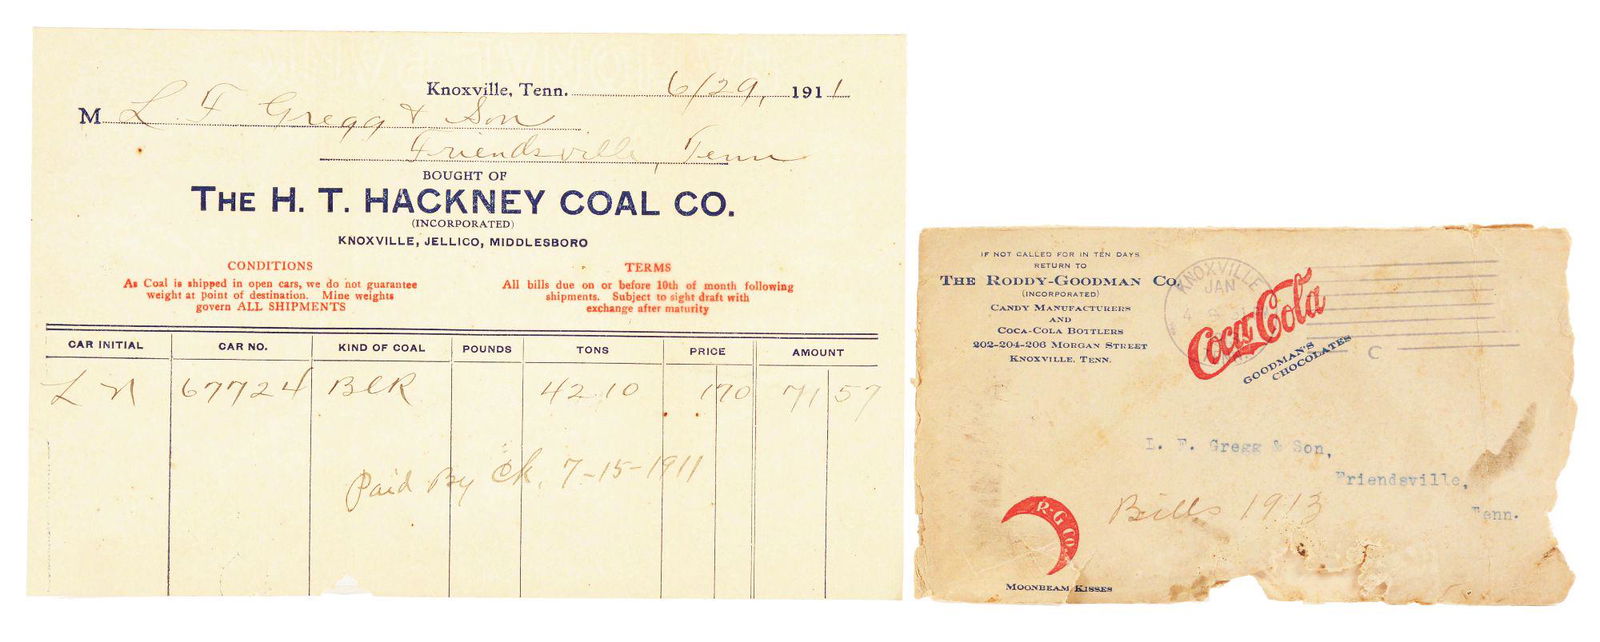 Knoxville, Tenn. 6/29, 1911
M L. F Gregg & Son
Friendsville, Tenn
BOUGHT OF
THE H. T. HACKNEY COAL CO.
(INCORPORATED)
KNOXVILLE, JELLICO, MIDDLESBORO
CONDITIONS
As Coal is shipped in open cars, we do not guarantee
weight at point of destination. Mine weights
govern ALL SHIPMENTS
TERMS
All bills due on or before 10th of month following
shipments. Subject to sight draft with
exchange after maturity
CAR INITIAL CAR NO. KIND OF COAL POUNDS TONS PRICE AMOUNT
L N 67724 BLK 42 10 170 71 57
Paid By Ck. 7-15-1911
IF NOT CALLED FOR IN TEN DAYS
RETURN TO
THE RODDY-GOODMAN CO.
(INCORPORATED)
CANDY MANUFACTURERS
AND
COCA-COLA BOTTLERS
202-204-206 MORGAN STREET
KNOXVILLE, TENN.
KNOXVILLE
JAN
4
C
Coca-Cola
GOODMAN'S
CHOCOLATES
L. F. Gregg & Son,
Friendsville,
Tenn.
Bills 1913
R-G CO.
MOONBEAM KISSES